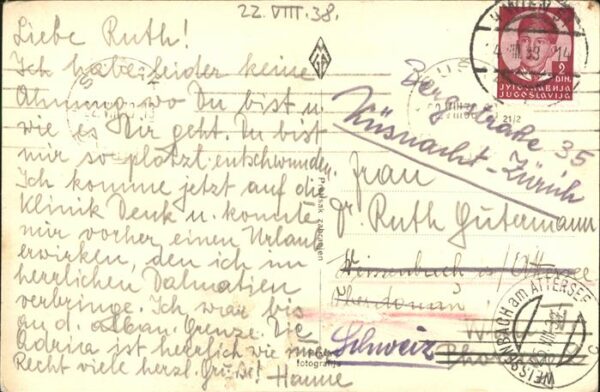 22. VIII. 38.
Liebe Ruth!
Ich habe leider keine
Ahnung wo Du bist u.
wie es Dir geht. Du bist
mir so plötzl. entschwunden.
Ich komme jetzt auf die
Klinik Denk u. konnte
mir vorher einen Urlaub
erwirken, den ich im
herrlichen Dalmatien
verbringe. Ich war bis
an d. alban. Grenze. Die
Adria ist herrlich wie immer
Recht viele herzl. Grüße! Hanne
2 DIN.
ЈУГОСЛАВИЈА
JUGOSLAVIJA
21/2
Bergstraße 35
Küsnacht-Zürich
Frau
Dr. Ruth Gutermann
Weissenbach a/Attersee
Schweiz
WEISSENBACH am ATTERSEE
fotografija